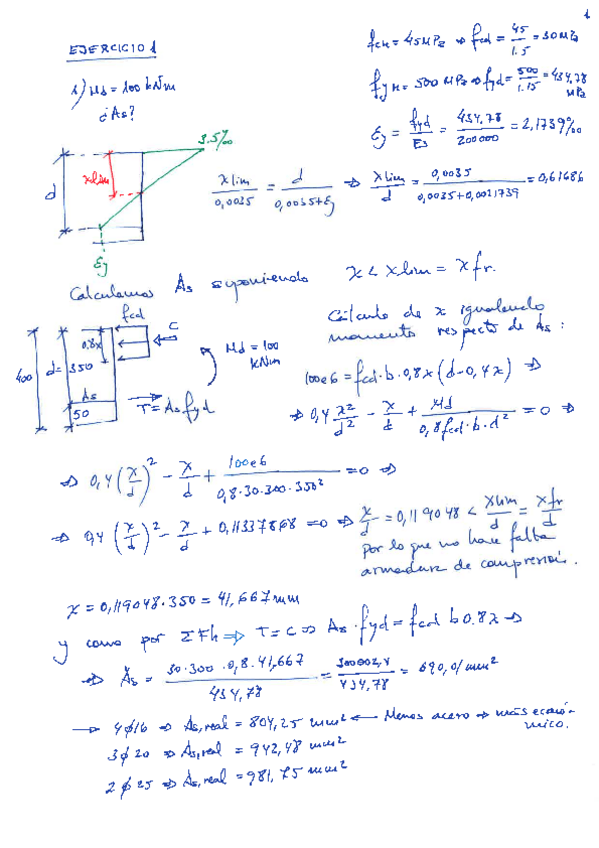 1
EJERCICIO 1
fck = 45 MPa ⇒ fcd = 45/1.5 = 30 MPa
1) Md = 100 kNm
¿As?
fyk = 500 MPa ⇒ fyd = 500/1.15 = 434,78 MPa
εy = fyd/Es = 434,78/200000 = 2,1739‰
3.5‰
d
xlim
εy
xlim/0,0035 = d/(0,0035+εy) ⇒ xlim/d = 0,0035/(0,0035+0,0021739) = 0,61686
Calculamos As suponiendo x < xlim = xfr.
fcd
0,8x
C
400
d=350
As
50
T = As fyd
Md = 100 kNm
Cálculo de x igualando
momentos respecto de As:
100e6 = fcd·b·0,8x(d-0,4x) ⇒
⇒ 0,4 x²/d² - x/d + Md/(0,8fcd·b·d²) = 0 ⇒
⇒ 0,4(x/d)² - x/d + 100e6/(0,8·30·300·350²) = 0 ⇒
⇒ 0,4(x/d)² - x/d + 0,11337868 = 0 ⇒ x/d = 0,119048 < xlim/d = xfr/d
por lo que no hace falta
armadura de compresión.
x = 0,119048·350 = 41,667mm
y como por ΣFh ⇒ T = C ⇒ As·fyd = fcd b 0.8x ⇒
⇒ As = 30·300·0,8·41,667/434,78 = 300002,4/434,78 = 690,01mm²
→ 4φ16 ⇒ As,real = 804,25 mm² ← Menos acero ⇒ más económico.
3φ20 ⇒ As,real = 942,48 mm²
2φ25 ⇒ As,real = 981,75 mm²